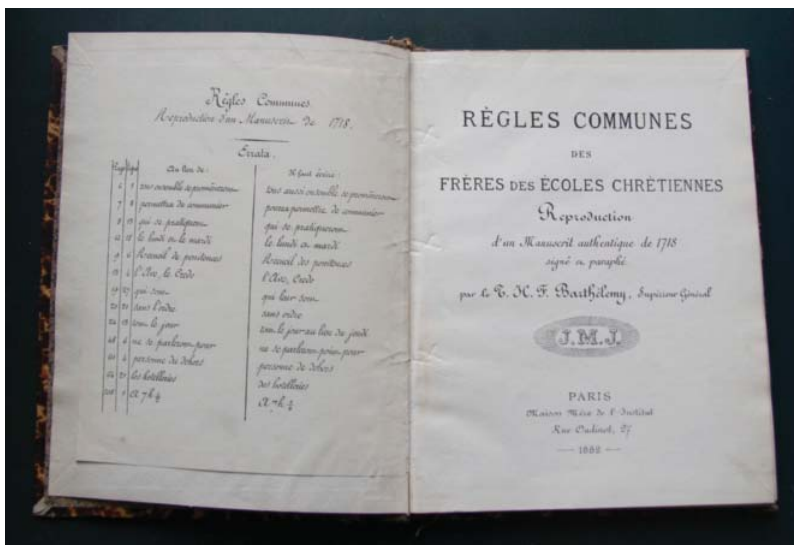 Règles Communes
Reproduction d'un Manuscrit de 1718.
Errata.
Page Ligne Au lieu de: Il faut écrire:
6 5 tous ensemble se promèneront tous aussi ensemble se promèneront
7 8 permettra de communier pourra permettre de communier
8 13 qui se pratiquent qui se pratiqueront
12 12 le lundi ou le mardi le lundi ou mardi
6 Recueil de pénitences Recueil des pénitences
l'Ave, le Credo l'Ave, Credo
27 qui sont qui leur sont
20 dans l'ordre sans ordre
tout le jour tout le jour au lieu du jeudi
6 ne se parleront pour ne se parleront point pour
4 personne de dehors personne du dehors
21 les hotelleries des hotelleries
A 7 h. A 7 h.
RÈGLES COMMUNES
DES
FRÈRES DES ÉCOLES CHRÉTIENNES
Reproduction
d'un Manuscrit authentique de 1718
signé et paraphé
par le T. H. F. Barthélemy, Supérieur Général
J.M.J.
PARIS
Maison Mère de l'Institut
Rue Oudinot, 27
— 1882 —